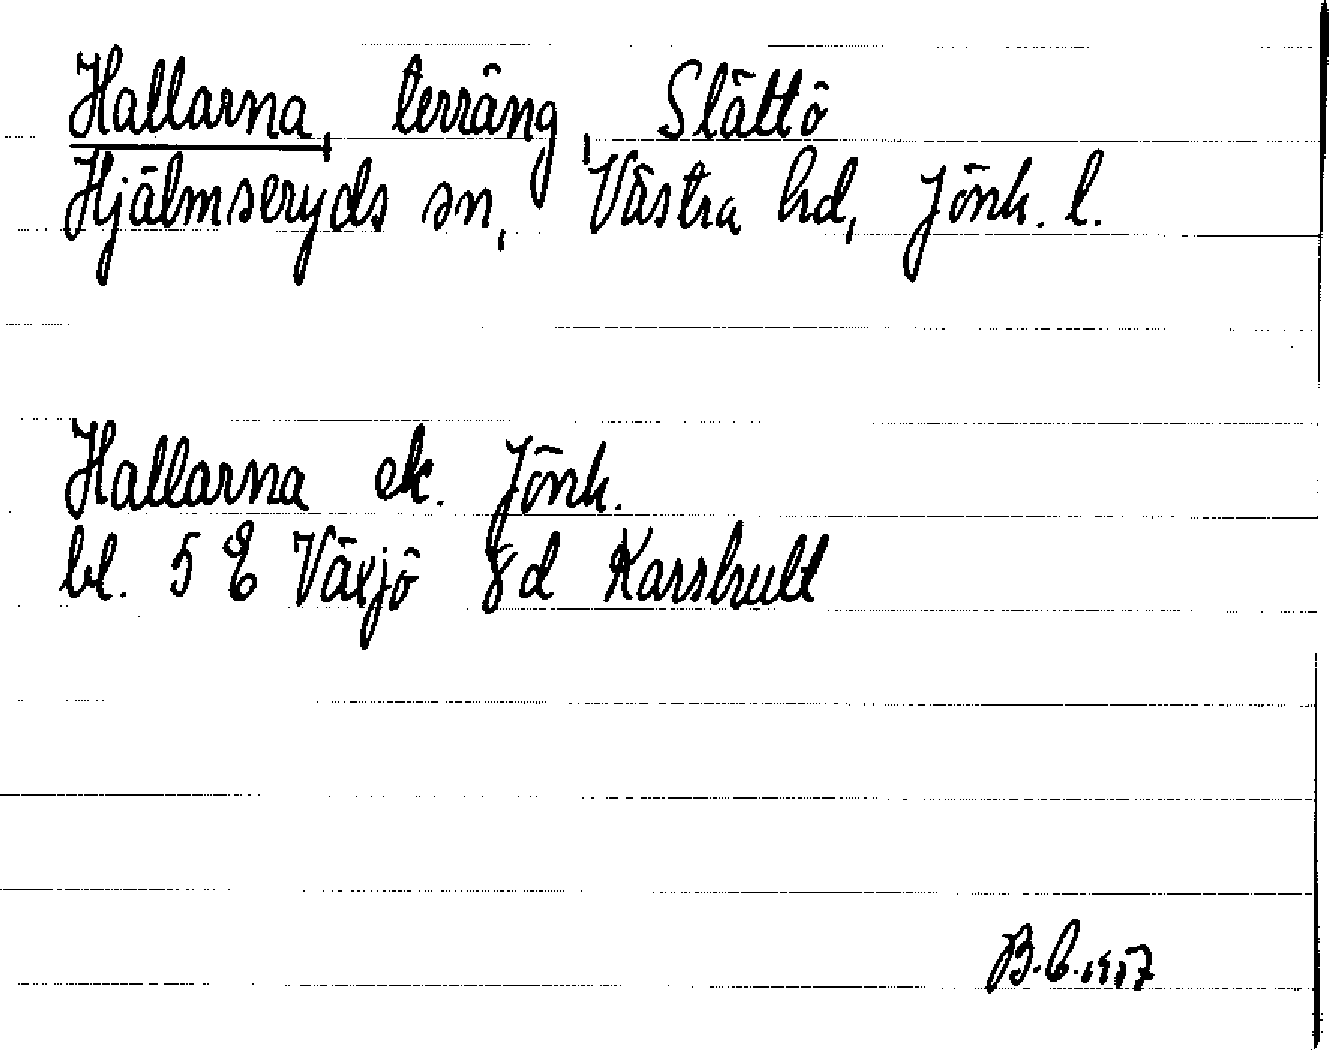 Hallarna, terräng, Slättö
Hjälmseryds sn, Västra hd, Jönk. l.
Hallarna ek. Jönk.
bl. 5 E Växjö 8d Karshult
B.E. 1957